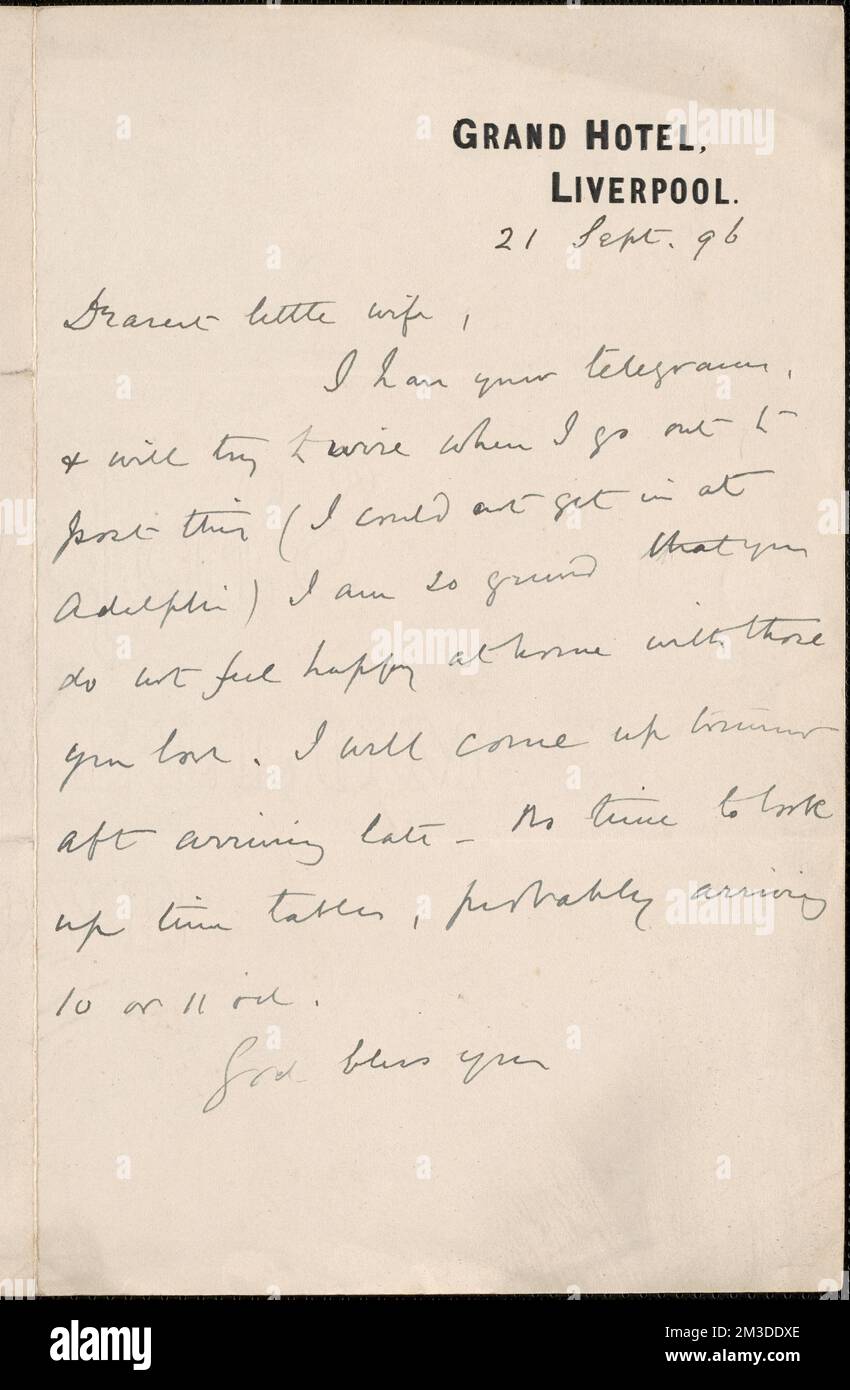 GRAND HOTEL,
LIVERPOOL.
21 Sept. 96
Dearest little wife,
I have your telegram,
& will try to wire when I go out to
post this (I could not get in at
Adelphi) I am so grieved that you
do not feel happy at home with those
you love. I will come up tomorrow
aft arriving late - No time to look
up time tables, probably arriving
10 or 11 
God bless you
alamy
Image ID: 2M3DDXE
www.alamy.com